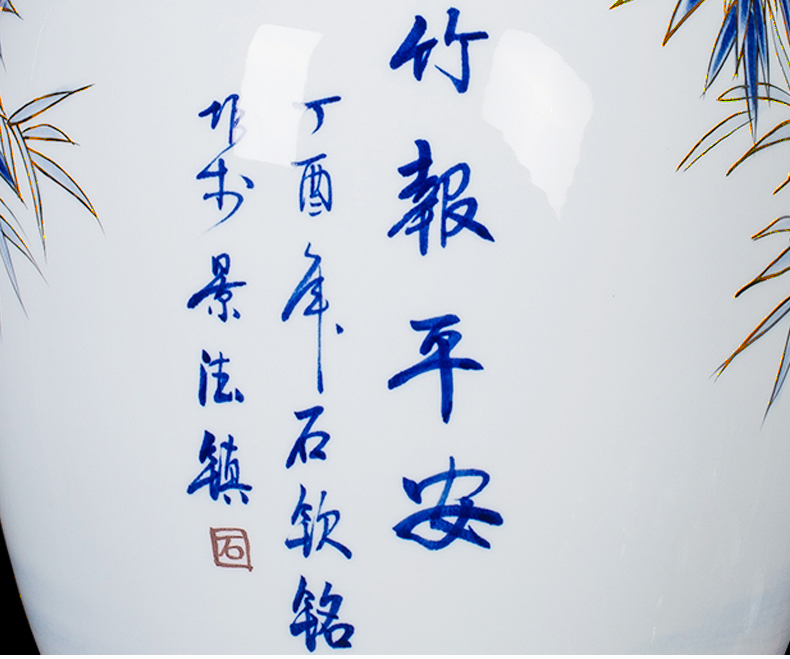 竹報平安
丁酉年石钦铭
作於景法镇
石